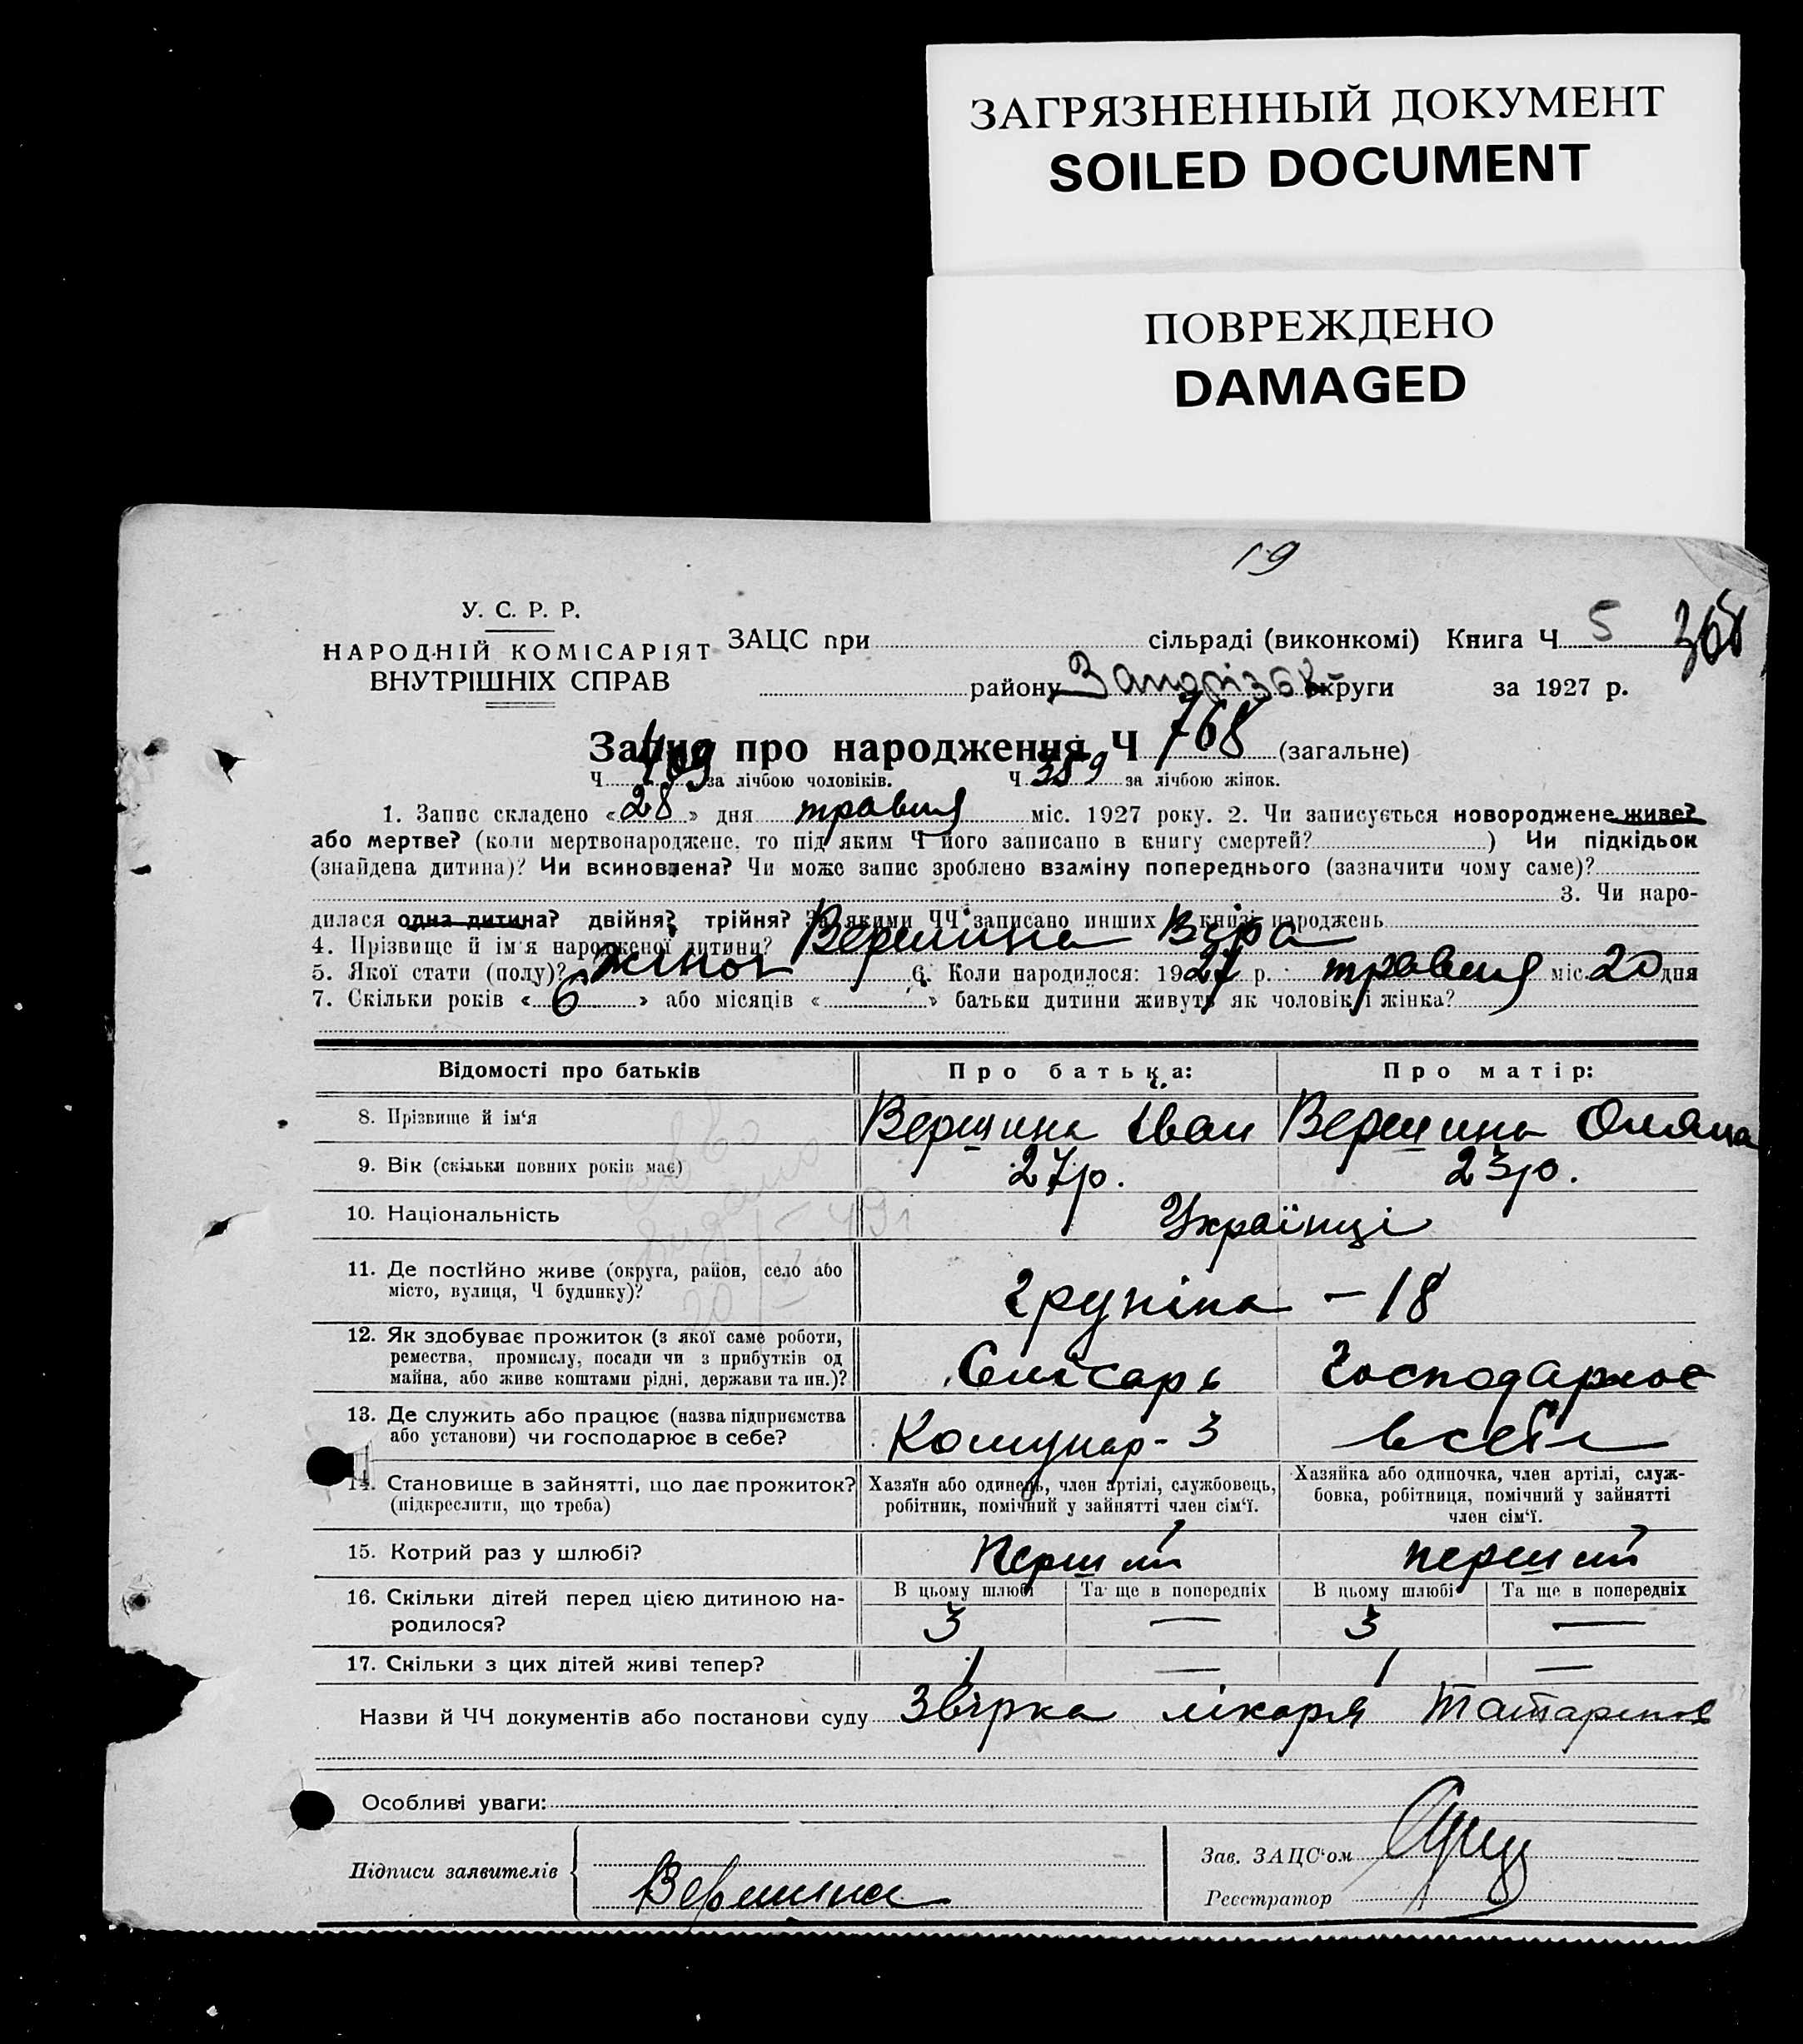 ЗАГРЯЗНЕННЫЙ ДОКУМЕНТ
SOILED DOCUMENT
ПОВРЕЖДЕНО
DAMAGED
19
У. С. Р. Р.
НАРОДНІЙ КОМІСАРІЯТ
ВНУТРІШНІХ СПРАВ
ЗАЦС при сільраді (виконкомі) Книга Ч 5
району Запорізьк округи за 1927 р.
Запис про народження Ч 768 (загальне)
Ч 409 за лічбою чоловіків. Ч 359 за лічбою жінок.
1. Запис складено «28» дня травня міс. 1927 року. 2. Чи записується новороджене живе?
або мертве? (коли мертвонароджене, то під яким Ч його записано в книгу смертей? ) Чи підкідьок
(знайдена дитина)? Чи всиновлена? Чи може запис зроблено взаміну попереднього (зазначити чому саме)?
3. Чи наро-
дилася одна дитина? двійня? трійня? За якими ЧЧ записано инших в книзі народжень
4. Прізвище й ім'я народженої дитини? Вершина Віра
5. Якої стати (полу)? жіноч 6. Коли народилося: 1927 р. травня міс. 20 дня
7. Скільки років «6» або місяців « » батьки дитини живуть як чоловік і жінка?
Відомості про батьків Про батька: Про матір:
8. Прізвище й ім‘я Вершина Іван Вершина Оляна
9. Вік (скільки повних років має) 27р. 23р.
10. Національність Українці
11. Де постійно живе (округа, район, село або
місто, вулиця, Ч будинку)? - 18
12. Як здобуває прожиток (з якої саме роботи,
ремества, промислу, посади чи з прибутків од
майна, або живе коштами рідні, держави та ин.)? Слісарь Господарює
13. Де служить або працює (назва підприємства
або установи) чи господарює в себе? Комунар - 3 в себе
14. Становище в зайнятті, що дає прожиток?
(підкреслити, що треба)
Хазяїн або одинець, член артілі, службовець,
робітник, помічний у зайнятті член сім‘ї.
Хазяйка або одиночка, член артілі, служ-
бовка, робітниця, помічний у зайнятті
член сім‘ї.
15. Котрий раз у шлюбі? перший перший
16. Скільки дітей перед цією дитиною на-
родилося?
В цьому шлюбі Та ще в попередніх В цьому шлюбі Та ще в попередніх
3 — 3 —
17. Скільки з цих дітей живі тепер? 1 — 1 —
Назви й ЧЧ документів або постанови суду лікаря
Особливі уваги:
Підписи заявителів Вершина
Зав. ЗАЦС‘ом
Реєстратор